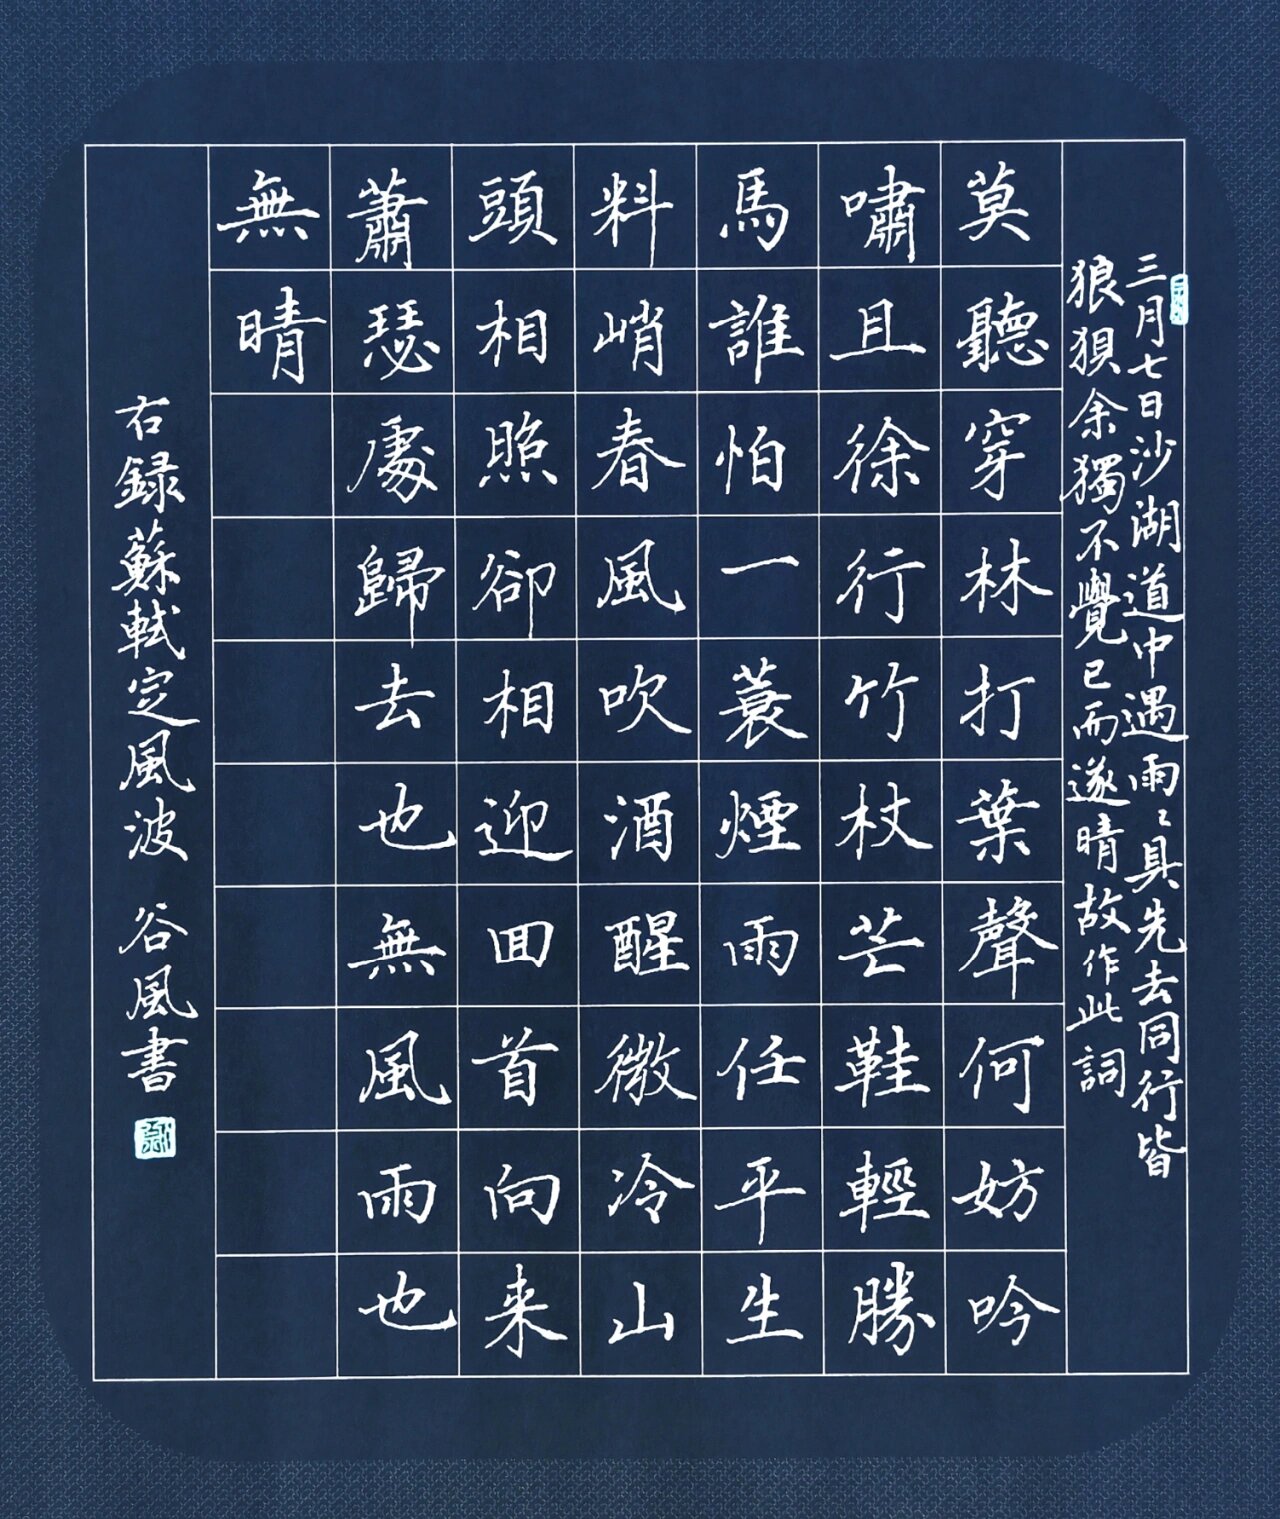 三月七日沙湖道中遇雨〻具先去同行皆
狼狽余獨不覺已而遂晴故作此詞
莫聽穿林打葉聲何妨吟
嘯且徐行竹杖芒鞋輕勝
馬誰怕一蓑煙雨任平生
料峭春風吹酒醒微冷山
頭相照卻相迎回首向来
蕭瑟處歸去也無風雨也
無晴
右録蘇軾定風波 谷風書